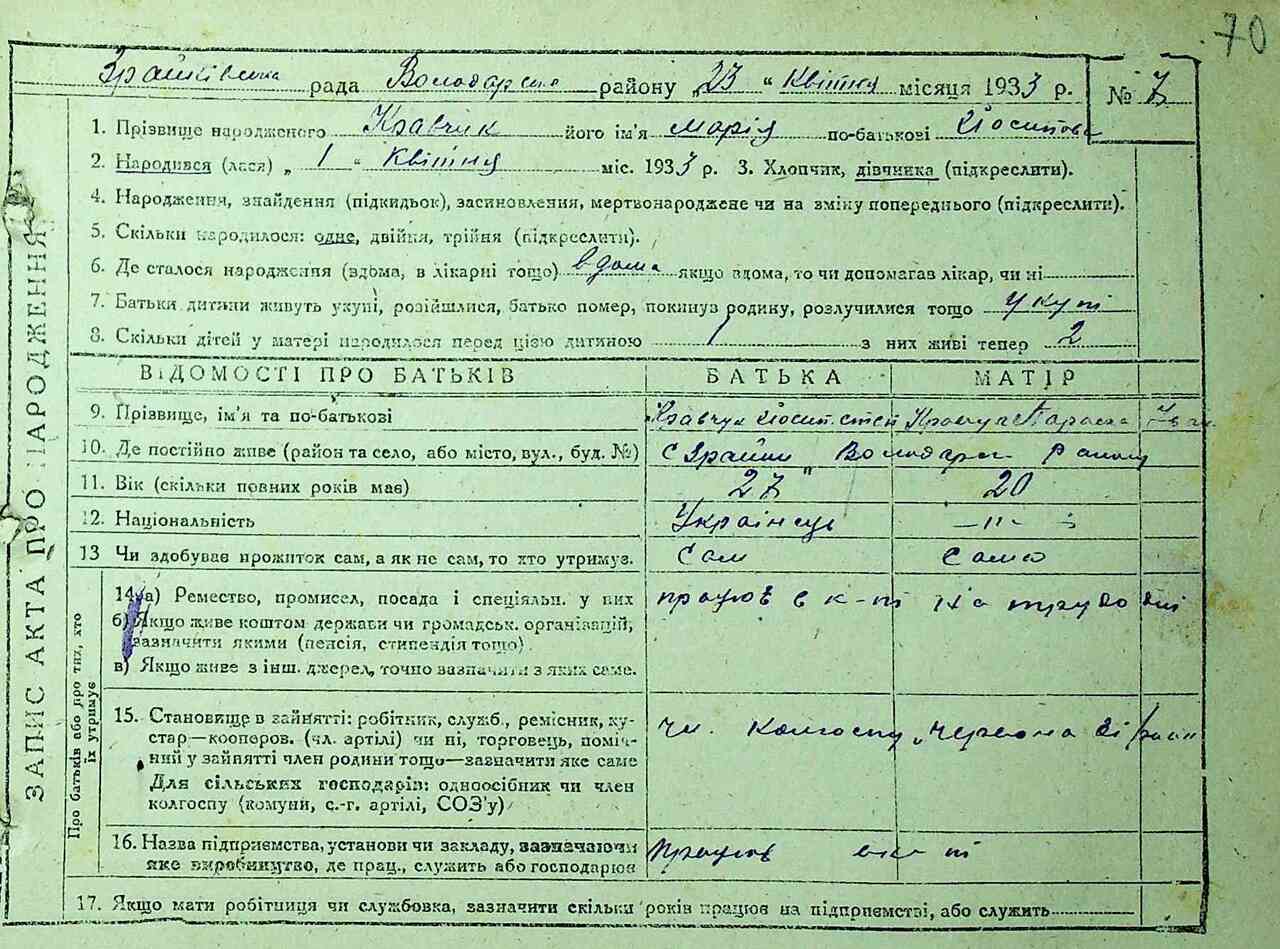 70
Зрайківська рада Володарського району „23" Квітня місяця 1933 р. № 7
1. Прізвище народженого Кравчук його ім'я Марія по-батькові Йосипова
2. Народився (лася) „ 1 " Квітня міс. 1933 р. 3. Хлопчик, дівчинка (підкреслити).
4. Народження, знайдення (підкидьок), засиновлення, мертвонароджене чи на зміку попереднього (підкреслити).
5. Скільки народилося: одне, двійня, трійня (підкреслити).
6. Де сталося народження (вдома, в лікарні тощо) вдома якщо вдома, то чи допомагав лікар, чи ні
7. Батьки дитини живуть укупі, розійшлися, батько помер, покинув родину, розлучилися тощо укупі
8. Скільки дітей у матері народилося перед цією дитиною 1 з них живі тепер 2
ВІДОМОСТІ ПРО БАТЬКІВ БАТЬКА МАТІР
9. Прізвище, ім'я та по-батькові Кравчук Йосип Степ Кравчук Параска Іван.
10. Де постійно живе (район та село, або місто, вул., буд. №) с Зрайки Володарс району
11. Вік (скільки повних років має) 27 20
12. Національність Українець —"—
13 Чи здобуває прожиток сам, а як не сам, то хто утримує. Сам Сама
14. а) Ремество, промисел, посада і спеціяльн. у них працює в к-пі На трудодні
б) Якщо живе коштом держави чи громадськ. організацій,
зазначити якими (пенсія, стипендія тощо)
в) Якщо живе з інш. джерел, точно зазначити з яких саме.
15. Становище в зайнятті: робітник, служб., ремісник, ку-
стар—кооперов. (чл. артілі) чи ні, торговець, поміч- чл. колгоспу „Червона
ний у зайнятті член родини тощо—зазначити яке саме
Для сільських господарів: одноосібник чи член
колгоспу (комуни, с.-г. артілі, СОЗ'у)
16. Назва підприємства, установи чи закладу, зазначаючи
яке виробництво, де прац., служить або господарює працює
17. Якщо мати робітниця чи службовка, зазначити скільки років працює на підприємстві, або служить
ЗАПИС АКТА ПРО НАРОДЖЕННЯ
Про батьків або про тих, хто
їх утримує